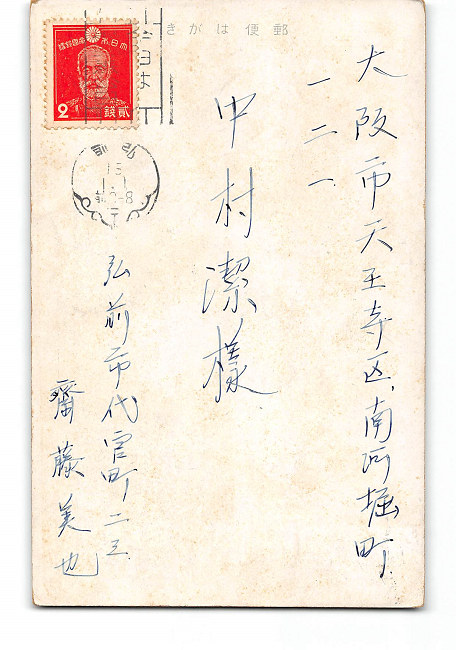 郵便はがき
大日本帝國郵便
2
貳錢
弘前
13
1.1
大阪市天王寺区南河堀町
一二一
中村潔様
弘前市代官町二三
齋藤美也